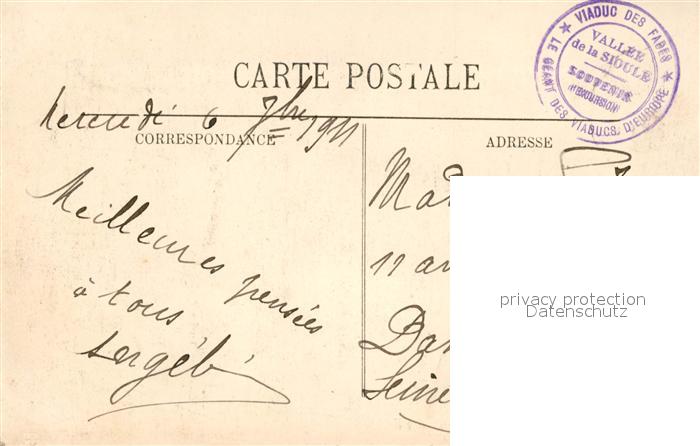 VIADUC DES FADES
LE GÉANT DES VIADUCS D'EUROPE
VALLÉE
de la SIOULE
SOUVENIR
D'EXCURSION
CARTE POSTALE
Mercredi 6 7bre 1911
CORRESPONDANCE
ADRESSE
Meilleures pensées
à tous
11 av
Seine
privacy protection
Datenschutz